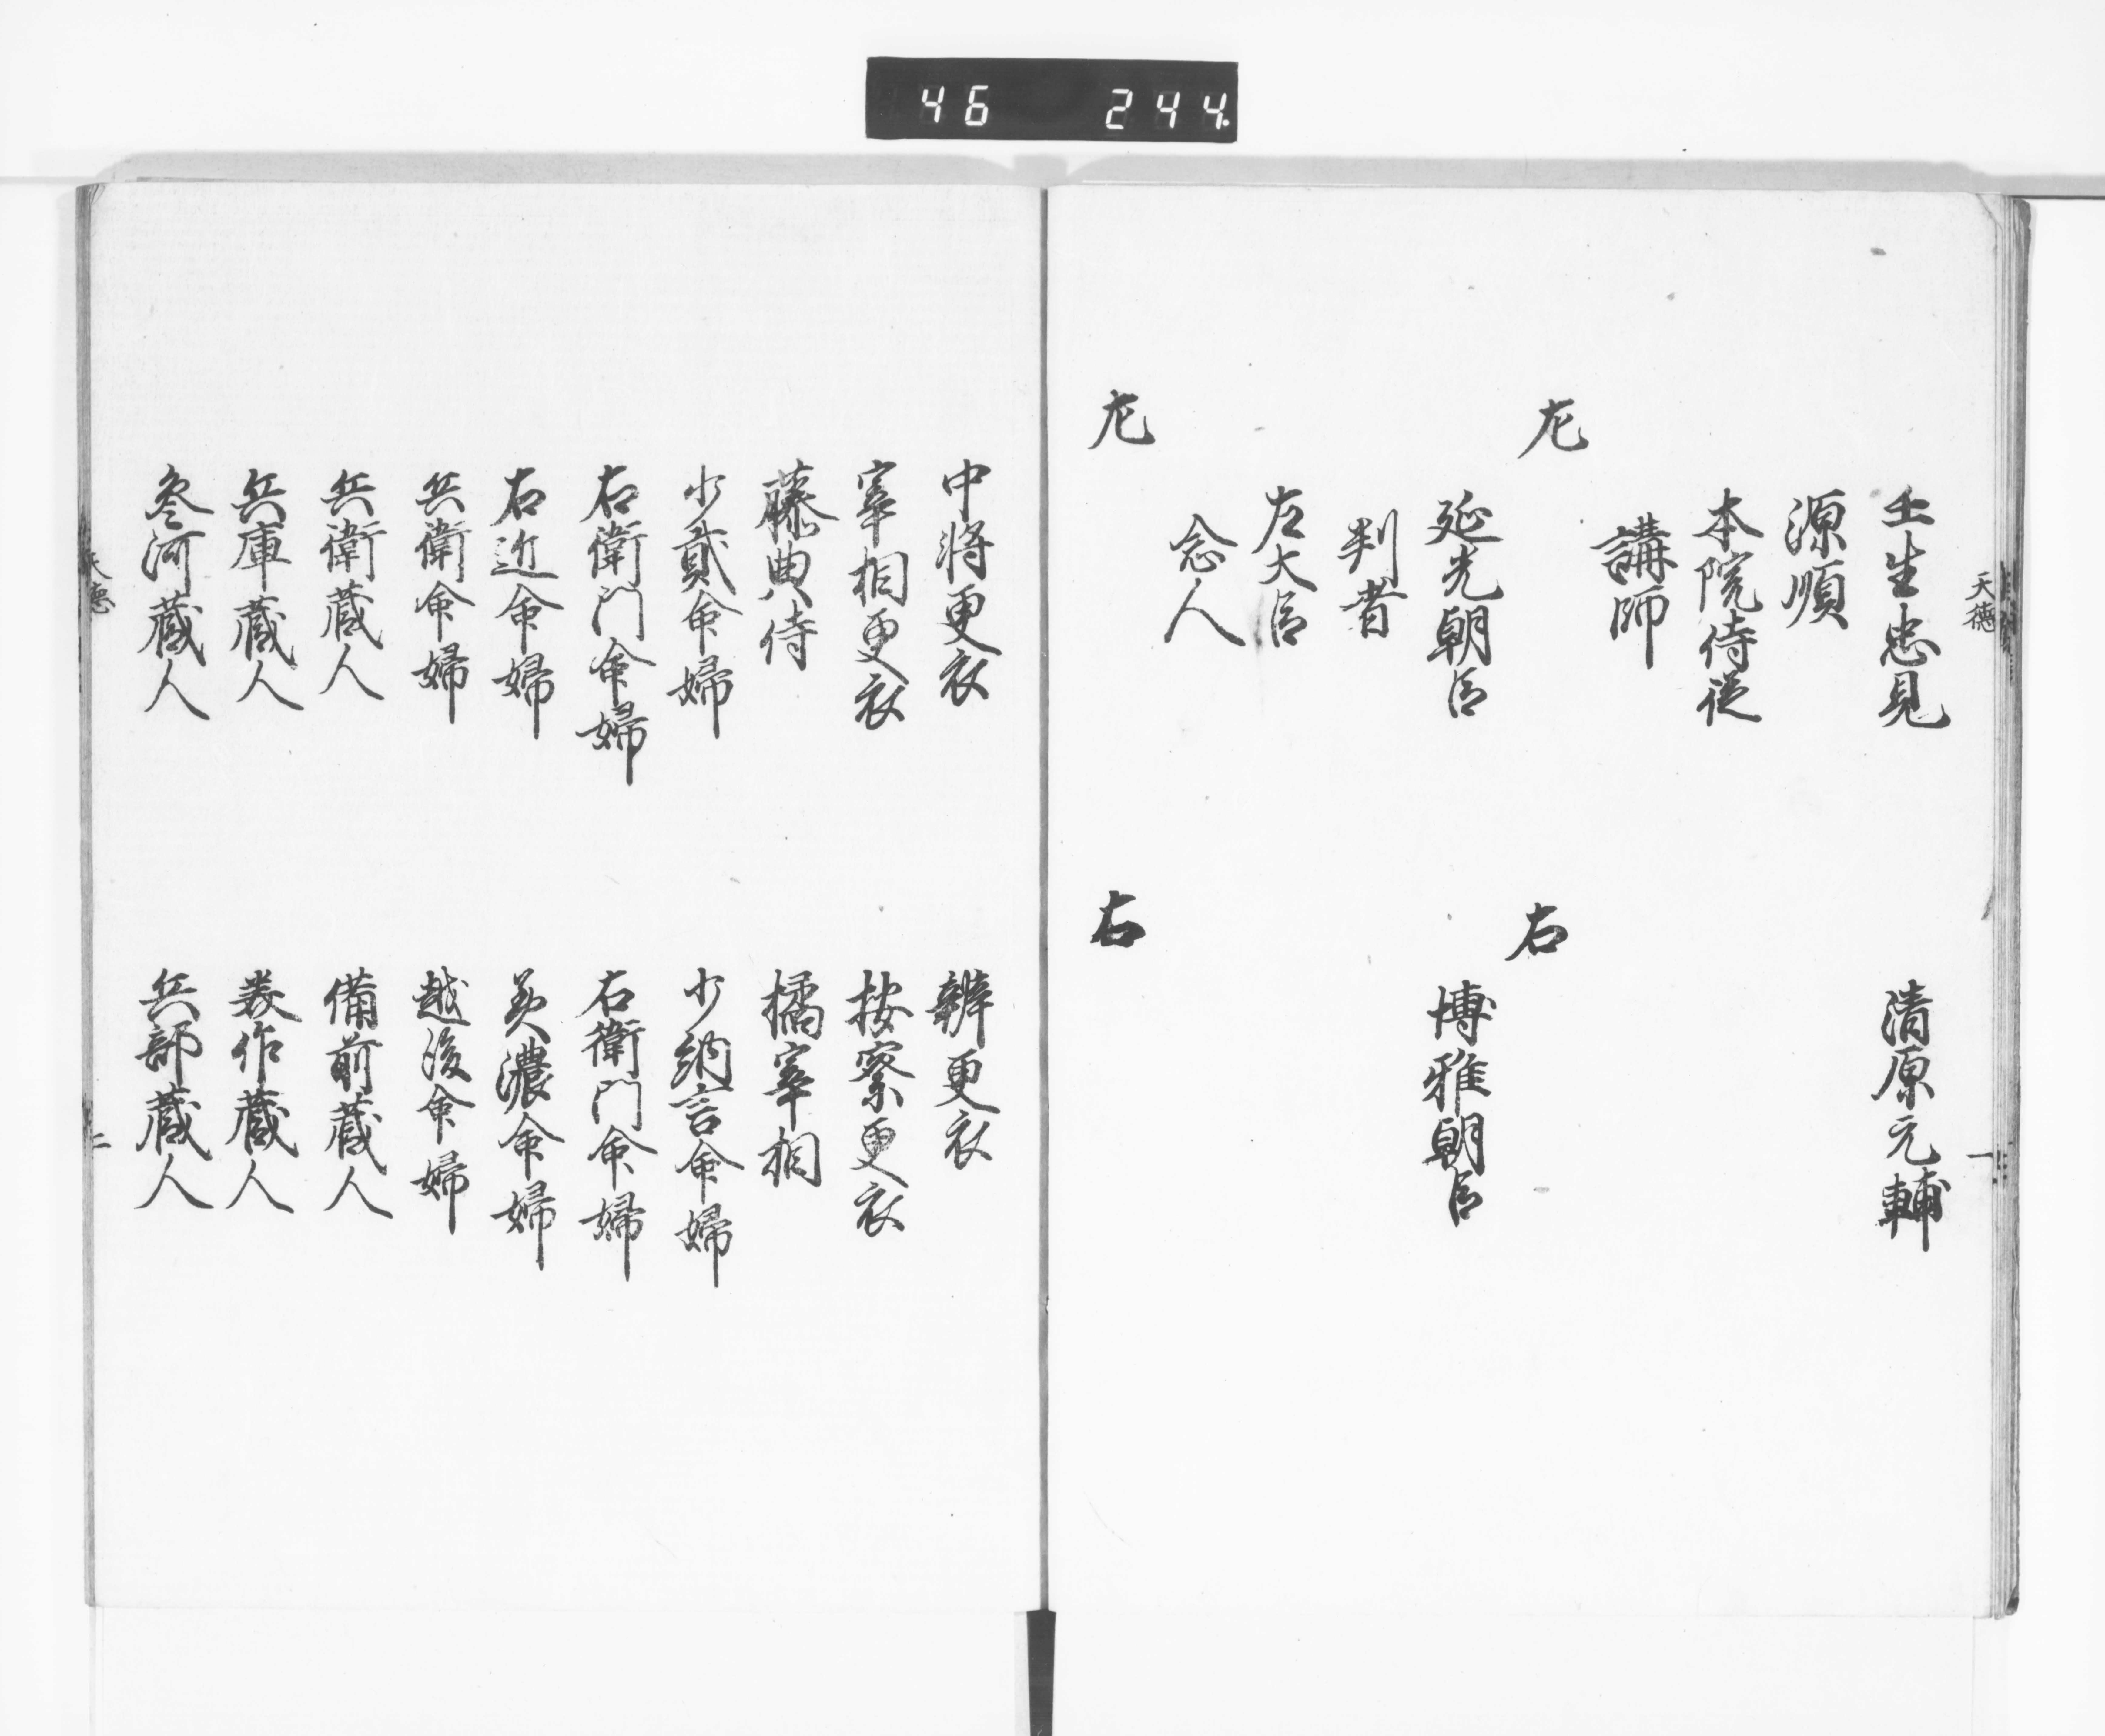 46 244
天徳
一
壬生忠見 清原元輔
源順
本院侍従
講師
左 右
延光朝臣 博雅朝臣
判者
左大臣
念人
左 右
中将更衣 辨更衣
宰相更衣 按察更衣
藤典侍 橘宰相
少貳命婦 少納言命婦
右衛門命婦 右衛門命婦
右近命婦 美濃命婦
兵衛命婦 越後命婦
兵衛蔵人 備前蔵人
兵庫蔵人 美作蔵人
参河蔵人 兵部蔵人
天徳
二